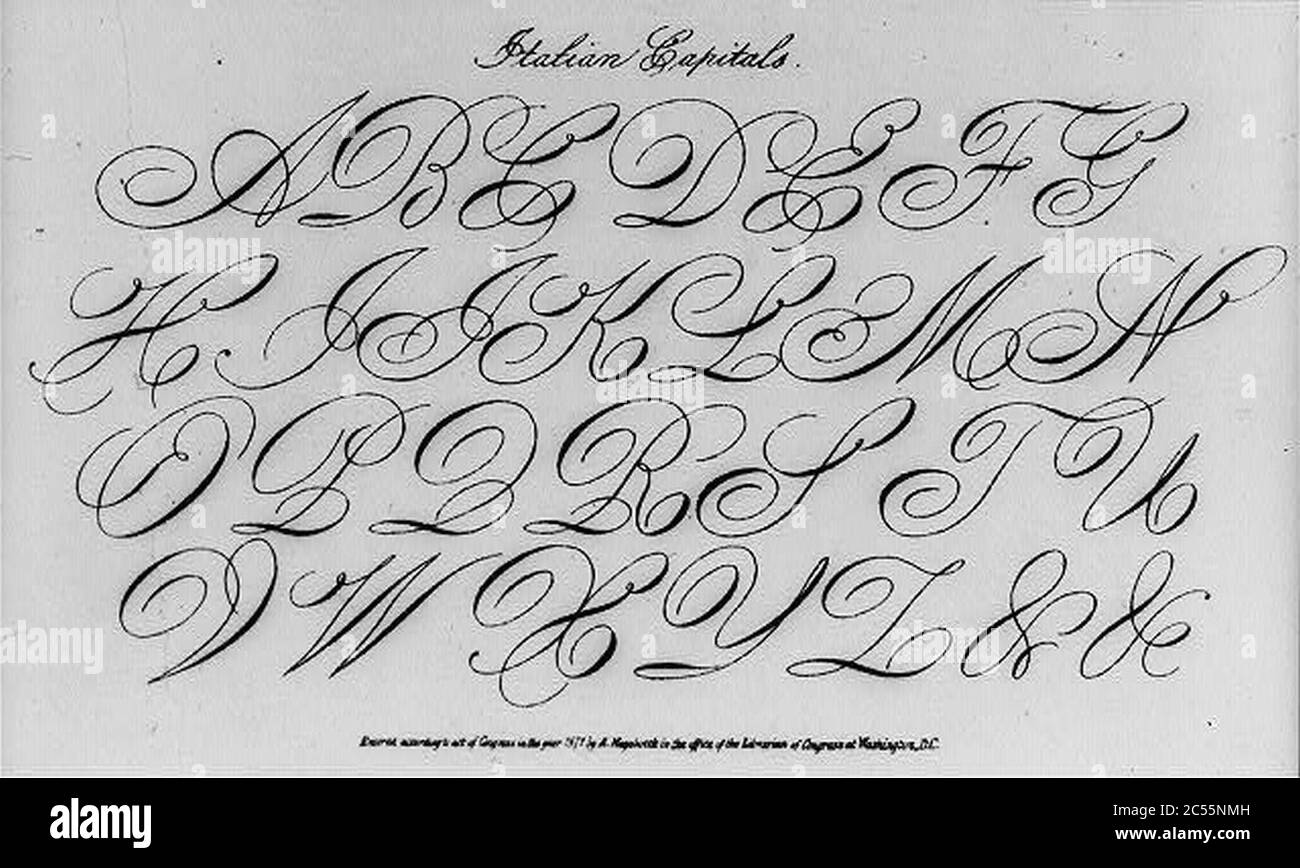 Italian Capitals.
A B C D E F G
H I J K L M N
O P Q R S T U
V W X Y Z & &
Entered according to act of Congress in the year 1871 by A. in the office of the Librarian of Congress at Washington, D.C.
alamy
Image ID: 2C55NMH
www.alamy.com